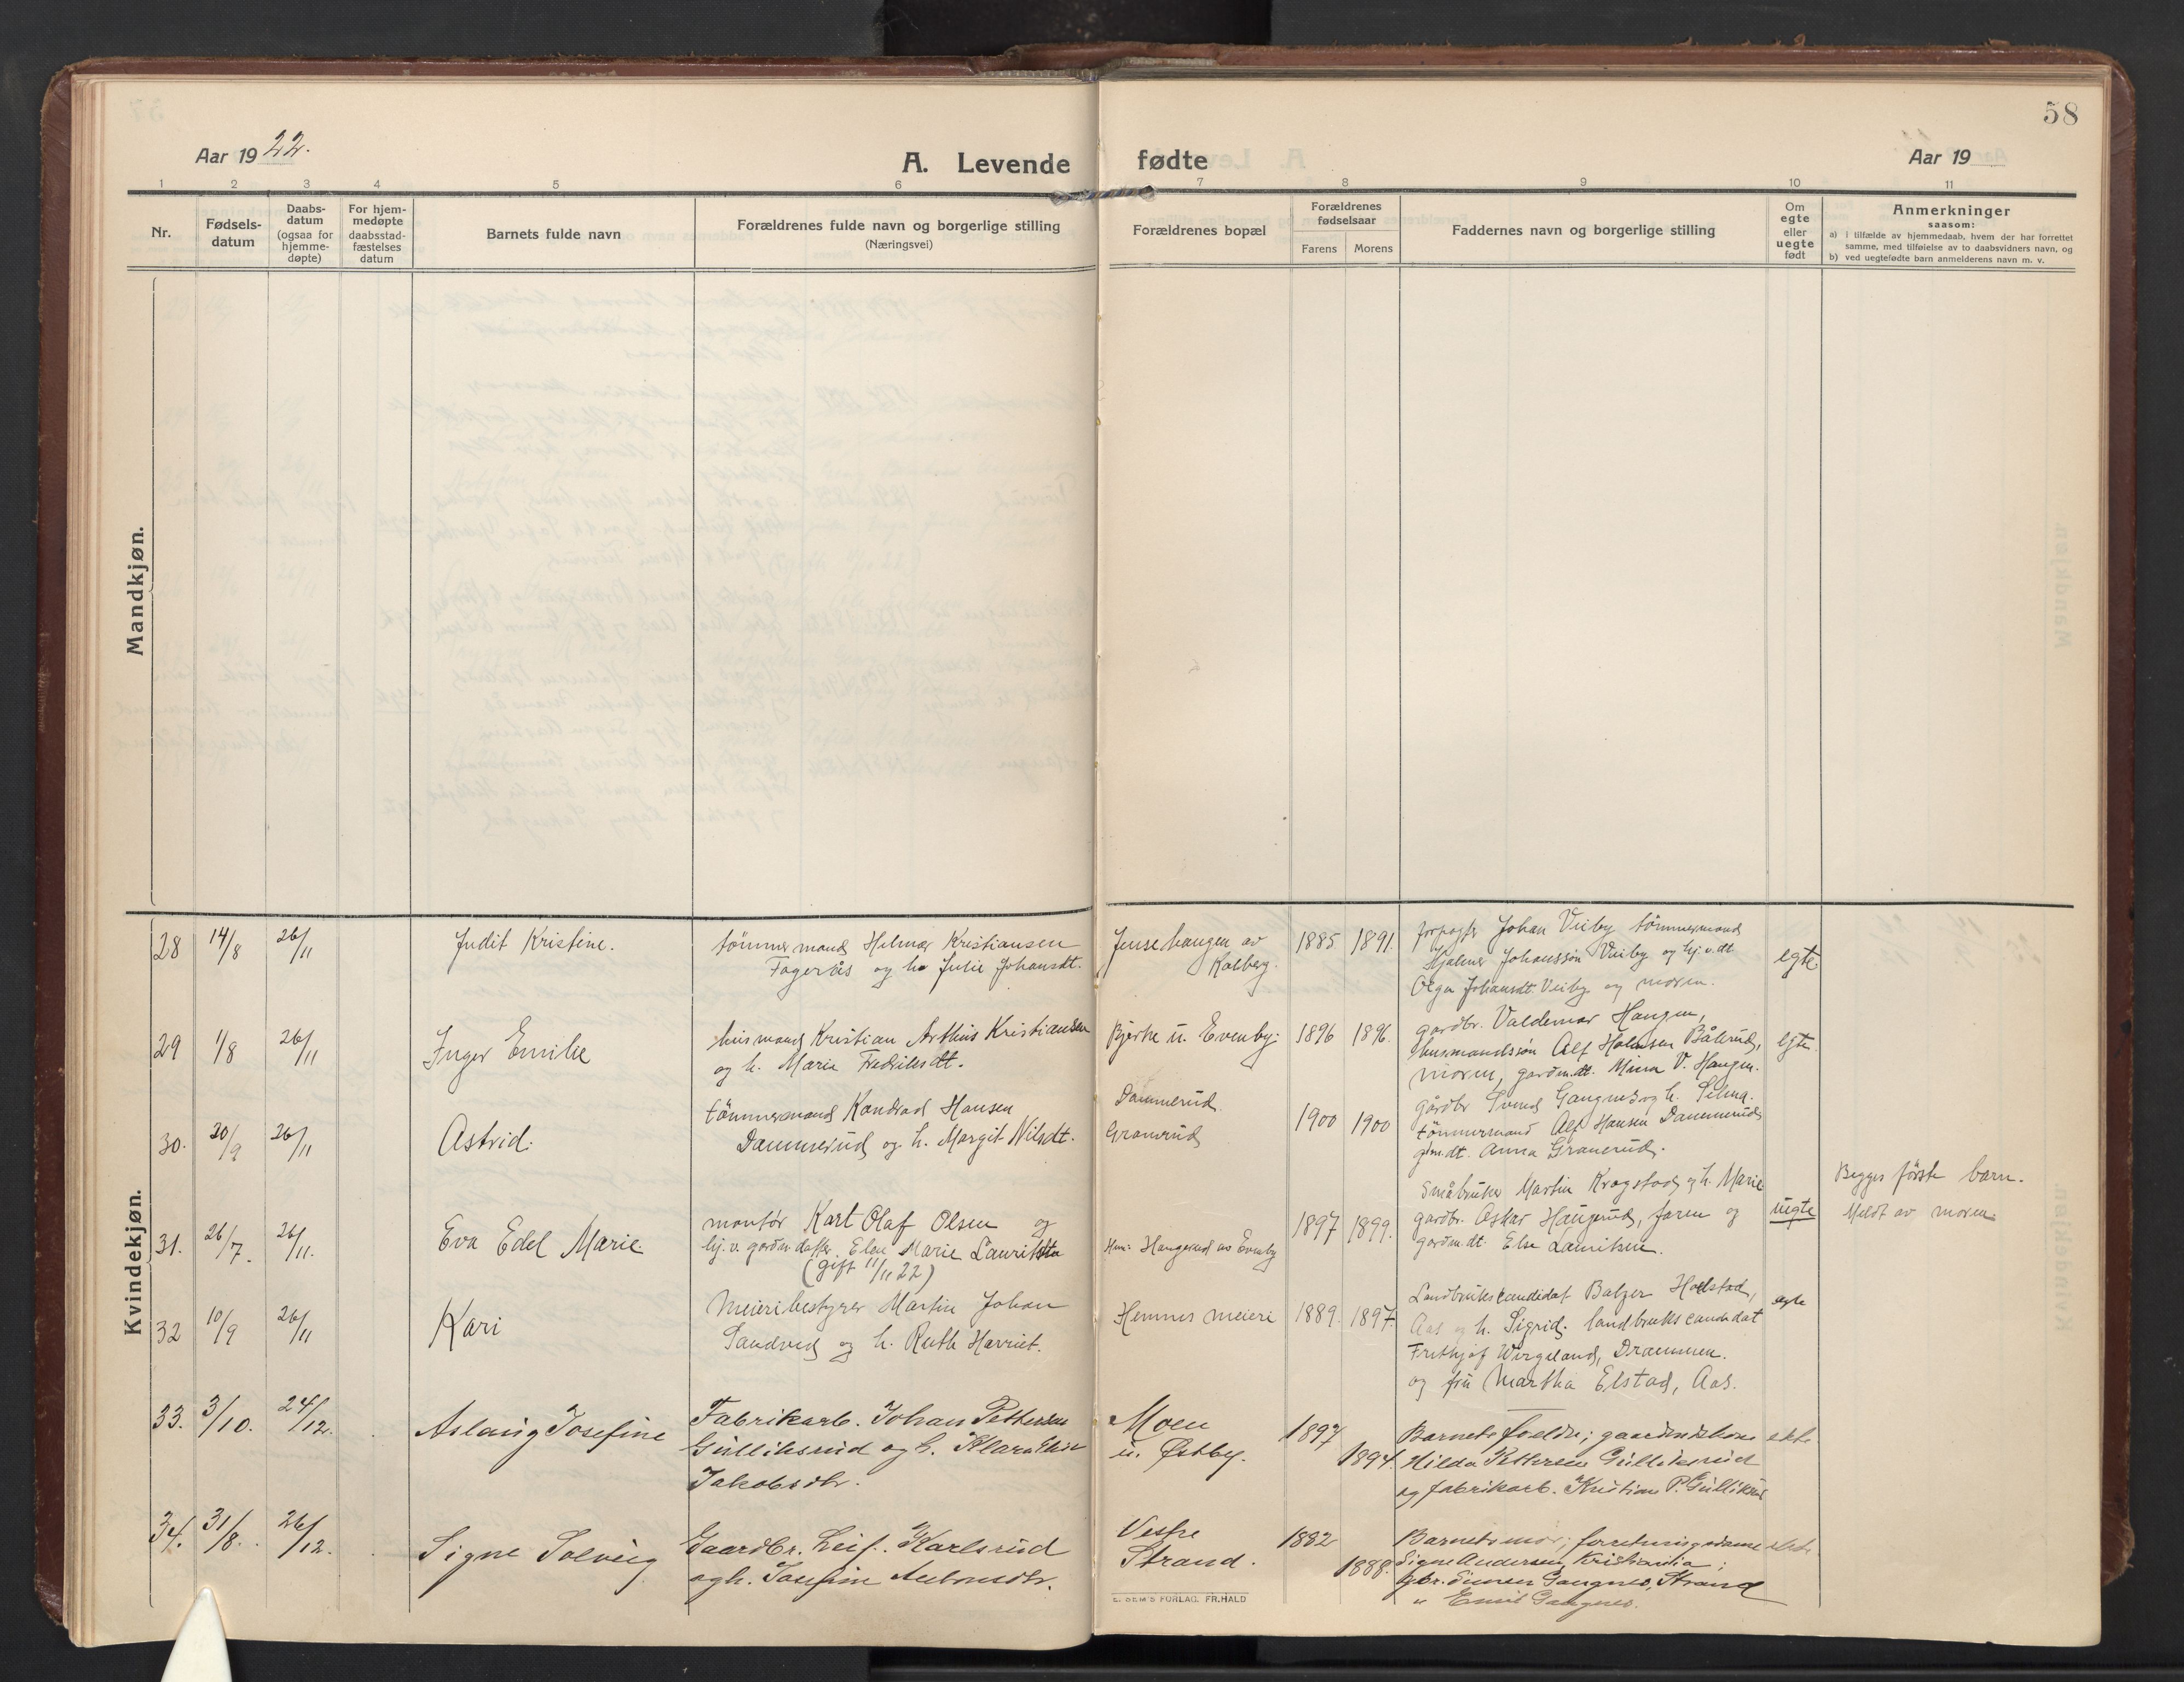 58
Aar 19 22.
A. Levende fødte
Aar 19
1 2 3 4 5 6 7 8 9 10 11
Nr.
Fødsels-
datum
Daabs-
datum
(ogsaa for
hjemme-
døpte)
For hjem-
medøpte
daabsstad-
fæstelses
datum
Barnets fulde navn
Forældrenes fulde navn og borgerlige stilling
(Næringsvei)
Forældrenes bopæl
Forældrenes
fødselsaar
Farens Morens
Faddernes navn og borgerlige stilling
Om
egte
eller
uegte
født
Anmerkninger
saasom:
a) i tilfælde av hjemmedaab, hvem der har forrettet
samme, med tilføielse av to daabsvidners navn, og
b) ved uegtefødte barn anmelderens navn m. v.
Mandkjøn.
Kvindekjøn.
28 14/8 26/11 Judit Kristine.
tømmermand Helmer Kristiansen
Fagerås og h. Julie Johansdt.
Jensehaugen av
Kolberg.
1885 1891.
Johan Veiby tømmermand
Hjalmar Johanssøn Veiby og hj.v.dt.
Olga Johansdt. Veiby og moren.
egte.
29 1/8 26/11 Inger Emilie
husmand Kristian Arthur Kristiansen
og h. Marie Fredriksdt.
Bjerke u. Evenby.
1896 1896.
gardbr. Valdemar Haugen,
husmandssøn Alf Båkerud,
moren, gardm.dt. Mina V. Haugen.
egte.
30. 20/9 26/11 Astrid.
tømmermand Kondrad Hansen
Dammerud og h. Margit Nilsdt.
Dammerud
Granerud
1900 1900
gårdbr. Svend Gangnes og h. Selma.
tømmermand Alf Hansen Dammerud,
gdm.dt. Anna Granerud.
31. 26/7. 26/11. Eva Edel Marie.
montør Kart Olaf Olsen og
hj.v. gardm.datter Else Marie
(gift 11/11 22)
Haugerud av Evenby
1897 1899.
Småbruker Martin Krogstad og h. Marie
gardbr. Askar Haugerud, faren og
gardm.dt. Else Lauritsen.
uegte
Begges første barn.
Meldt av moren.
32 10/9 26/11 Kari
Meieribestyrer Martin Johan
Sandved og h. Ruth Harriet.
Hemnes meieri
1889. 1897.
Landbrukscandidat Balzer
Aas og h. Sigrid. landbrukscandidat
Frithjof Wergeland, Drammen.
og fru Martha Elstad, Aas.
egte
33. 3/10. 24/12. Aslaug Josefine
Fabrikarb. Johan Pettersen
Gulliksrud og h. Klara
Jakobsdtr.
Moen
u. Østby.
1897
1894.
Barnets foeldre; gaardmdskone
Hilda Pettersen Gulliksrud
og fabrikarb. Kristian P. Gulliksrud
ekte
34. 31/8. 26/12. Signe Solveig
Gaardbr. Leif Karlsrud
og h. Josefine
Vestre
Strand.
1882
1888.
Barnets mor; forretningsdame
Signe Andersen, Kristiania;
gbr. Simen Gangnes, Strand
" Emil Gangnes.
ekte
E. SEM'S FORLAG, FR.HALD